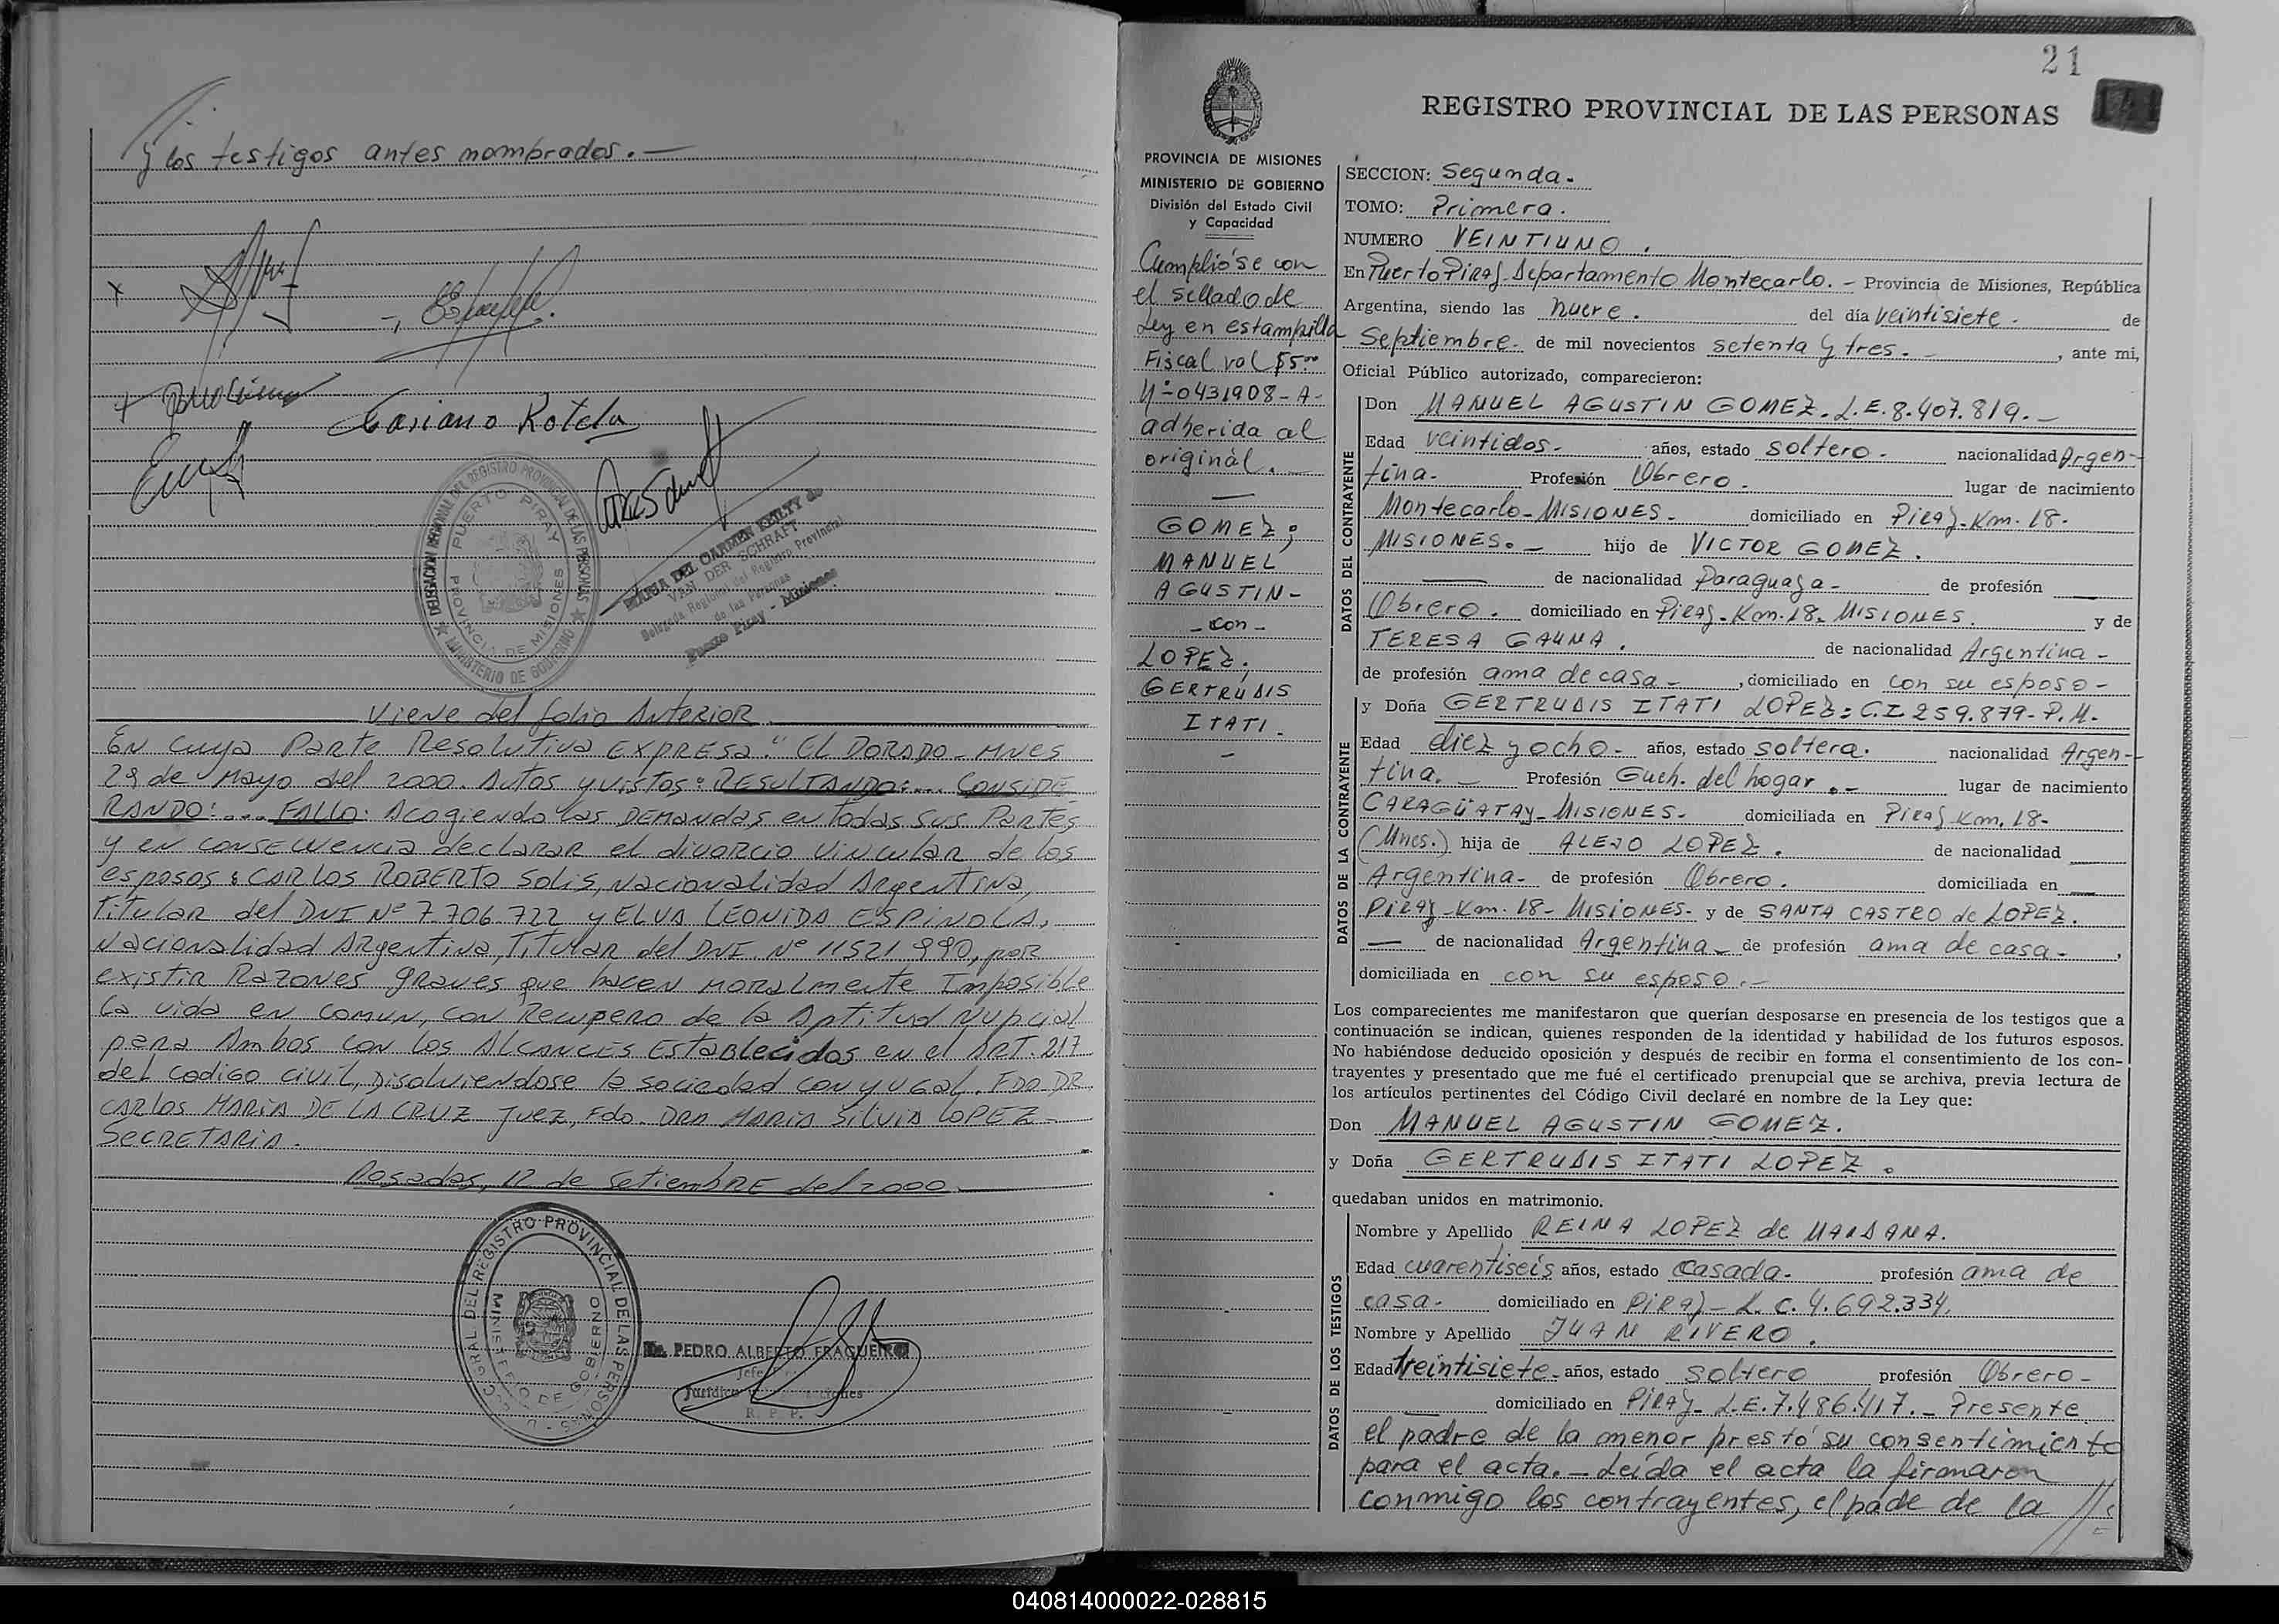 y los testigos antes nombrados.—
Casiano Rotela
DELEGACION REGIONAL DEL REGISTRO PROVINCIAL DE LAS PERSONAS
MINISTERIO DE GOBIERNO
PUERTO PIRAY
PROVINCIA DE MISIONES
MARIA DEL CARMEN KEILTY de
VAN DER SCHRAFT
Delegada Regional del Registro Provincial
de las Personas
Puerto Piray - Misiones
Viene del folio Anterior
En cuya Parte Resolutiva EXPRESA: "EL DORADO - MNES
29 de Mayo del 2000. Autos y vistos: RESULTANDO:... CONSIDE
RANDO:... FALLO: Acogiendo las DEMANDAS en todas sus Partes
y en consecuencia declarar el divorcio vincular de los
esposos: CARLOS ROBERTO Solis, Nacionalidad Argentina,
Titular del DNI Nº 7.706.722 y ELVA LEONIDA ESPINOLA,
Nacionalidad Argentina, Titular del DNI. Nº 11521990, por
existir Razones graves que hacen moralmente Imposible
la vida en comun, con Recupero de la Aptitud Nupcial
para Ambos con los Alcances Establecidos en el ART. 217
del codigo civil, Disolviendose la sociedad conyugal. FDO. DR.
CARLOS MARIA DE LA CRUZ Juez, Fdo. DRA MARIA SILVIA LOPEZ -
SECRETARIA.
Posadas, 12 de Setiembre del 2000.
REGISTRO PROVINCIAL DE LAS PERSONAS
MINISTERIO DE GOBIERNO
Dr. PEDRO ALBERTO FRAGUEIRO
Jefe
R. P. P.
21
141
REGISTRO PROVINCIAL DE LAS PERSONAS
PROVINCIA DE MISIONES
MINISTERIO DE GOBIERNO
División del Estado Civil
y Capacidad
Cumplióse con
el sellado de
Ley en estampilla
Fiscal val $5.00
Nº 0431908-A-
adherida al
original.—
GOMEZ;
MANUEL
AGUSTIN-
-con-
LOPEZ;
GERTRUDIS
ITATI.
SECCION: Segunda.
TOMO: Primera.
NUMERO VEINTIUNO.
En Puerto Piray Departamento Montecarlo.- Provincia de Misiones, República
Argentina, siendo las nueve. del día veintisiete. de
Septiembre. de mil novecientos setenta y tres.- , ante mi,
Oficial Público autorizado, comparecieron:
DATOS DEL CONTRAYENTE
Don MANUEL AGUSTIN GOMEZ. L.E. 8.407.819.—
Edad veintidos. años, estado soltero. nacionalidad Argen-
tina. Profesión Obrero. lugar de nacimiento
Montecarlo-MISIONES. domiciliado en Piray-Km. 18.
MISIONES.- hijo de VICTOR GOMEZ.
— de nacionalidad Paraguaya- de profesión
Obrero. domiciliado en Piray-Km. 18. MISIONES. y de
TERESA GAUNA. de nacionalidad Argentina-
de profesión ama de casa- , domiciliado en con su esposo-
DATOS DE LA CONTRAYENTE
y Doña GERTRUDIS ITATI LOPEZ: C.I. 259.879-P.M.
Edad diez y ocho- años, estado soltera. nacionalidad Argen-
tina.- Profesión Queh. del hogar.- lugar de nacimiento
CARAGÜATAY-MISIONES- domiciliada en Piray-Km. 18-
(Mnes.) hija de ALEJO LOPEZ. de nacionalidad
Argentina- de profesión Obrero. domiciliada en
Piray-Km. 18-MISIONES- y de SANTA CASTRO de LOPEZ.
— de nacionalidad Argentina- de profesión ama de casa- ,
domiciliada en con su esposo.-
Los comparecientes me manifestaron que querían desposarse en presencia de los testigos que a
continuación se indican, quienes responden de la identidad y habilidad de los futuros esposos.
No habiéndose deducido oposición y después de recibir en forma el consentimiento de los con-
trayentes y presentado que me fué el certificado prenupcial que se archiva, previa lectura de
los artículos pertinentes del Código Civil declaré en nombre de la Ley que:
Don MANUEL AGUSTIN GOMEZ.
y Doña GERTRUDIS ITATI LOPEZ.
quedaban unidos en matrimonio.
DATOS DE LOS TESTIGOS
Nombre y Apellido REINA LOPEZ de MAIDANA.
Edad cuarentiseis años, estado Casada- profesión ama de
casa- domiciliado en Piray-L.C. 4.692.334.
Nombre y Apellido JUAN RIVERO.
Edad treintisiete- años, estado soltero profesión Obrero-
— domiciliado en Piray- L.E. 7.486.417.- Presente
el padre de la menor prestó su consentimiento
para el acta.- Leída el acta la firmaron
conmigo los contrayentes, el pade de la //
040814000022-028815